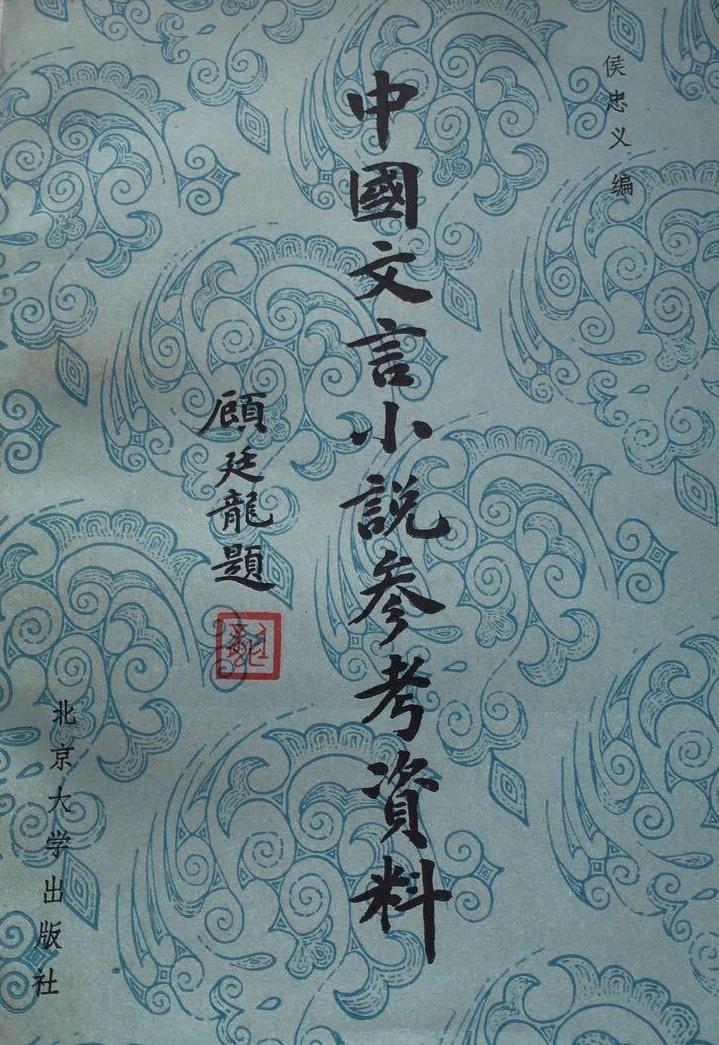 侯忠义 编
中國文言小説参考資料
顧廷龍題
北京大学出版社